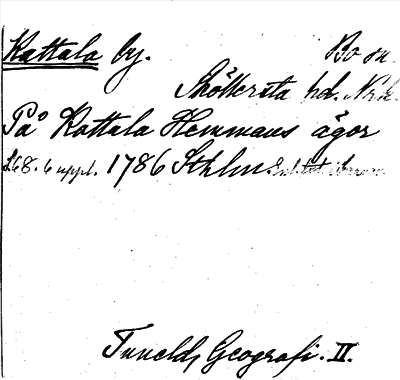 Kattala by. Bo sn
Sköllersta hd. Nrk.
På Kattala Hemmans ägor
s. 68. 6 uppl. 1786 Sthlm.
Tuneld, Geografi. II.